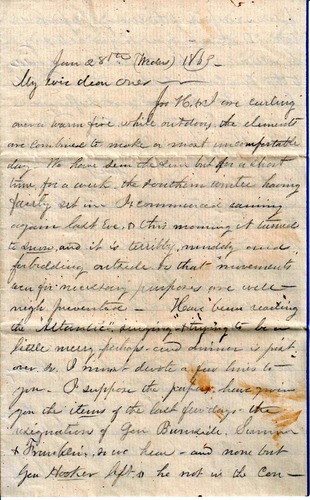 Jan 28th (Weds) 1863 -
My own dear ones
Jos H. & I are
over a warm fire, while outdoors, the elements
are combined to make a most uncomfortable
day. We have seen the Sun but for a short
time, for a week, the southern winter having
fairly set in - It commenced raining
again last Eve, & this morning it turned
to snow, and it is terribly muddy and
forbidding outside so that "movements"
even for "necessary" purposes are well-
nigh preventive - Have been reading
the "Atlantic" singing - & trying to be a
little merry perhaps - and dinner is just
over & I must devote a few lines to
you - I suppose the papers have given
you the items of the last few days - the
resignation of Gen Burnside, Sumner
& Franklin, so we hear - and none but
Gen Hooker left & he not in the con -